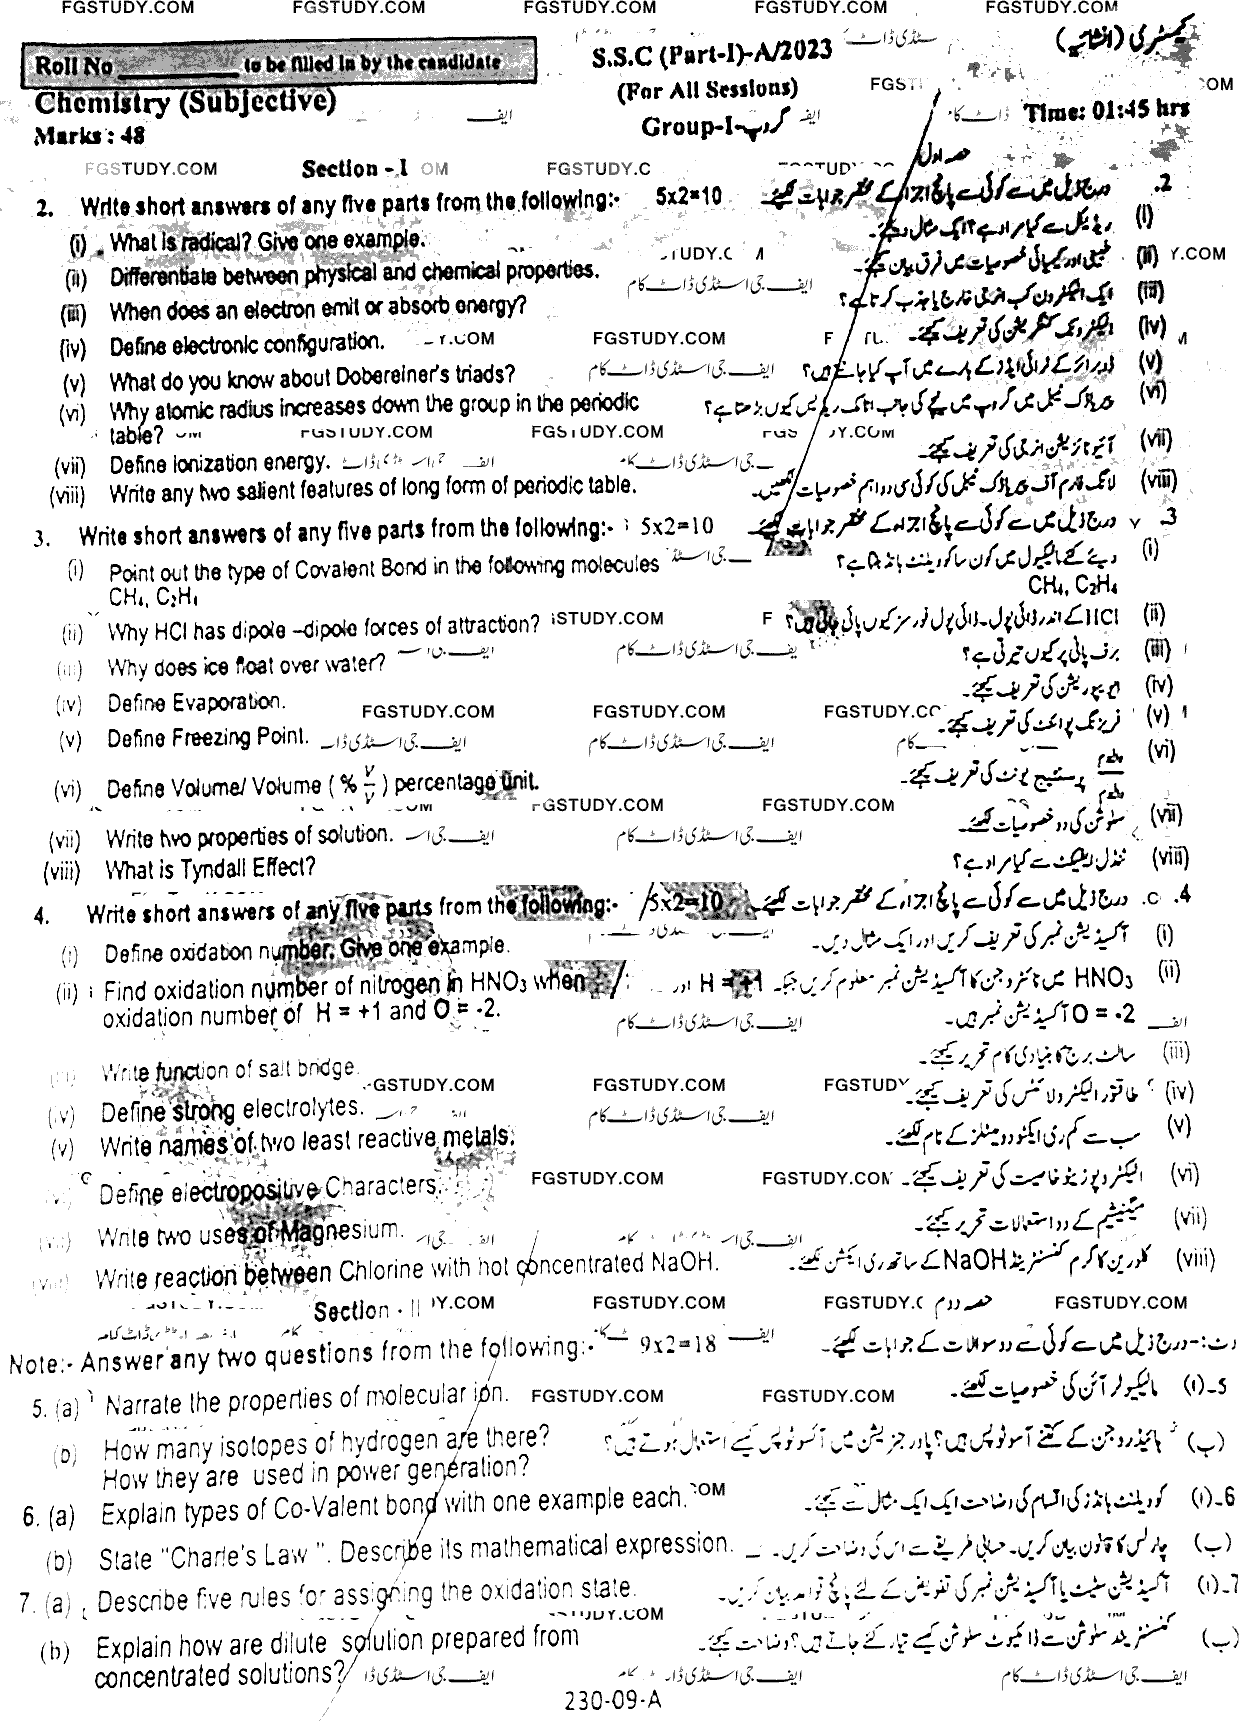 FGSTUDY.COM FGSTUDY.COM FGSTUDY.COM FGSTUDY.COM FGSTUDY.COM
Roll No __________ to be filled in by the candidate S.S.C (Part-I)-A/2023 کیمسٹری (انشائیہ)
Chemistry (Subjective) (For All Sessions)
Marks : 48 Group-I-گروپ Time: 01:45 hrs
Section - I حصہ اول
2. Write short answers of any five parts from the following:- 5x2=10 درج ذیل میں سے کوئی سے پانچ اجزاء کے مختصر جوابات لکھیئے۔ .2
(i) What is radical? Give one example. ریڈیکل سے کیا مراد ہے؟ ایک مثال دیجئے۔ (i)
(ii) Differentiate between physical and chemical properties. طبعی اور کیمیائی خصوصیات میں فرق بیان کیجئے۔ (ii)
(iii) When does an electron emit or absorb energy? ایک الیکٹرون کب انرجی خارج یا جذب کرتا ہے؟ (iii)
(iv) Define electronic configuration. الیکٹرونک کنفگریشن کی تعریف کیجئے۔ (iv)
(v) What do you know about Dobereiner's triads? ڈوبرائنر کے ٹرائی ایڈز کے بارے میں آپ کیا جانتے ہیں؟ (v)
(vi) Why atomic radius increases down the group in the periodic پیریاڈک ٹیبل میں گروپ میں نیچے کی جانب اٹامک ریڈیس کیوں بڑھتا ہے؟ (vi)
table?
(vii) Define ionization energy. آئیونائزیشن انرجی کی تعریف کیجئے۔ (vii)
(viii) Write any two salient features of long form of periodic table. لانگ فارم آف پیریاڈک ٹیبل کی کوئی سی دو اہم خصوصیات لکھیں۔ (viii)
3. Write short answers of any five parts from the following:- 5x2=10 درج ذیل میں سے کوئی سے پانچ اجزاء کے مختصر جوابات لکھیئے۔ .3
(i) Point out the type of Covalent Bond in the following molecules دیئے گئے مالیکیول میں کون سا کوویلنٹ بانڈ ہے؟ (i)
CH₄, C₂H₄ CH₄, C₂H₄
(ii) Why HCl has dipole –dipole forces of attraction? HCl کے اندر ڈائی پول۔ڈائی پول فورسز کیوں پائی جاتی ہیں؟ (ii)
(iii) Why does ice float over water? برف پانی پر کیوں تیرتی ہے؟ (iii)
(iv) Define Evaporation. ایوپوریشن کی تعریف کیجئے۔ (iv)
(v) Define Freezing Point. فریزنگ پوائنٹ کی تعریف کیجئے۔ (v)
(vi) Define Volume/ Volume ( % v/v ) percentage unit. والیم/والیم پرسنٹیج یونٹ کی تعریف کیجئے۔ (vi)
(vii) Write two properties of solution. سلوشن کی دو خصوصیات لکھئے۔ (vii)
(viii) What is Tyndall Effect? ٹنڈل ایفیکٹ سے کیا مراد ہے؟ (viii)
4. Write short answers of any five parts from the following:- 5x2=10 درج ذیل میں سے کوئی سے پانچ اجزاء کے مختصر جوابات لکھیئے۔ .4
(i) Define oxidation number. Give one example. آکسیڈیشن نمبر کی تعریف کریں اور ایک مثال دیں۔ (i)
(ii) Find oxidation number of nitrogen in HNO₃ when HNO₃ میں نائٹروجن کا آکسیڈیشن نمبر معلوم کریں جبکہ H = +1 اور (ii)
oxidation number of H = +1 and O = -2. O = -2 آکسیڈیشن نمبر ہیں۔
(iii) Write function of salt bridge. سالٹ برج کا بنیادی کام تحریر کیجئے۔ (iii)
(iv) Define strong electrolytes. طاقتور الیکٹرولائٹس کی تعریف کیجئے۔ (iv)
(v) Write names of two least reactive metals. سب سے کم ری ایکٹو دو میٹلز کے نام لکھئے۔ (v)
(vi) Define electropositive Characters. الیکٹروپوزیٹو خاصیت کی تعریف کیجئے۔ (vi)
(vii) Write two uses of Magnesium. میگنیشیم کے دو استعمالات تحریر کیجئے۔ (vii)
(viii) Write reaction between Chlorine with hot concentrated NaOH. کلورین کا گرم کنسنٹریٹڈ NaOH کے ساتھ ری ایکشن لکھئے۔ (viii)
Section - II حصہ دوم
Note:- Answer any two questions from the following:- 9x2=18 نوٹ:- درج ذیل میں سے کوئی سے دو سوالات کے جوابات لکھیئے۔
5. (a) Narrate the properties of molecular ion. مالیکیولر آئن کی خصوصیات لکھئے۔ 5۔(ا)
(b) How many isotopes of hydrogen are there? ہائیڈروجن کے کتنے آسوٹوپس ہیں؟ پاور جنریشن میں آئسوٹوپس کیسے استعمال ہوتے ہیں؟ (ب)
How they are used in power generation?
6. (a) Explain types of Co-Valent bond with one example each. کوویلنٹ بانڈز کی اقسام کی وضاحت ایک ایک مثال سے کیجئے۔ 6۔(ا)
(b) State "Charle's Law ". Describe its mathematical expression. چارلس کا قانون بیان کریں۔ حسابی طریقے سے اس کی وضاحت کریں۔ (ب)
7. (a) Describe five rules for assigning the oxidation state. آکسیڈیشن سٹیٹ یا آکسیڈیشن نمبر کی تفویض کے لئے پانچ قواعد بیان کریں۔ 7۔(ا)
(b) Explain how are dilute solution prepared from کنسنٹریٹڈ سلوشن سے ڈائلیوٹ سلوشن کیسے تیار کئے جاتے ہیں؟ وضاحت کیجئے۔ (ب)
concentrated solutions? ایف جی اسٹڈی ڈاٹ کام
230-09-A